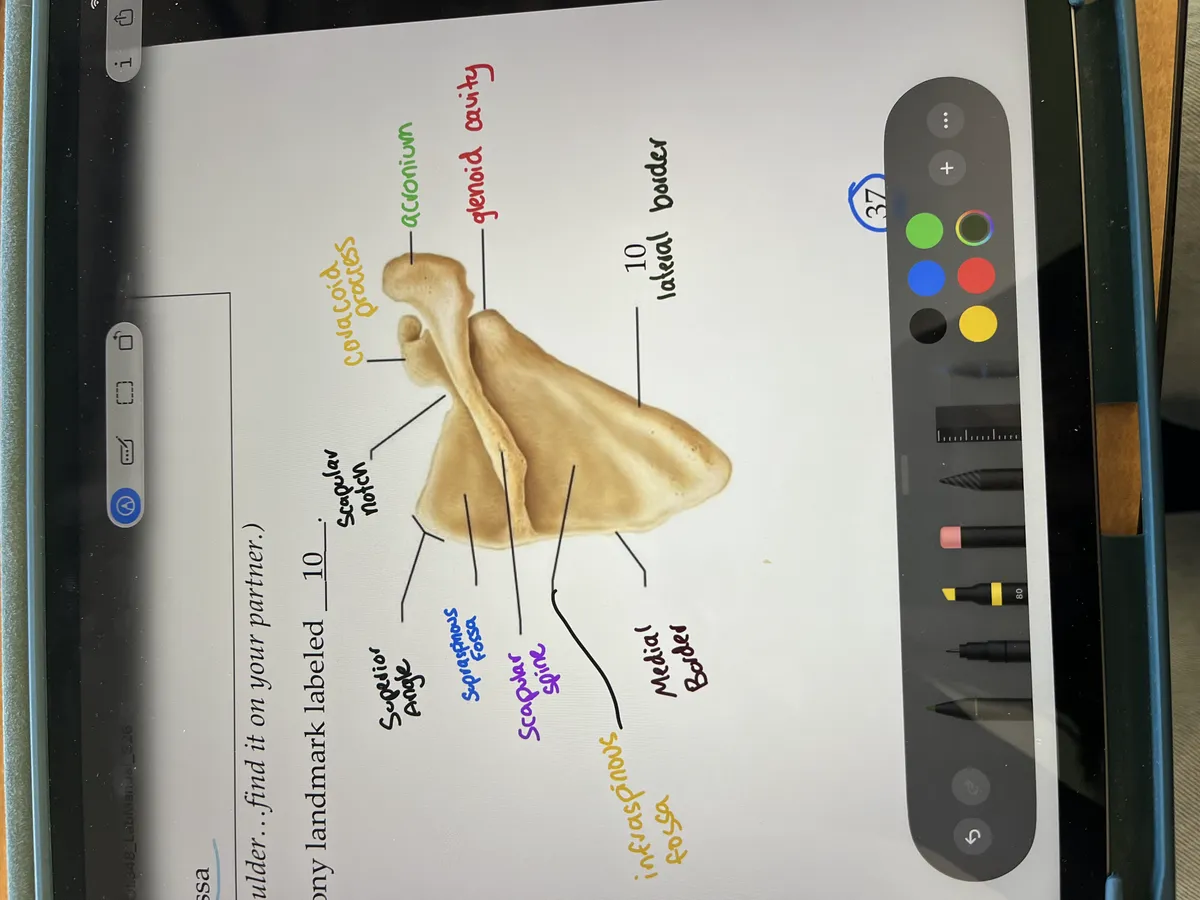 ssa
ulder…find it on your partner.)
ony landmark labeled 10.
Scapular
notch
covacoid
process
acronium
glenoid cavity
10
lateral border
Superior
Angle
Supraspinous
Fossa
Scapular
Spine
infraspinous
fossa
Medial
Border
37
80